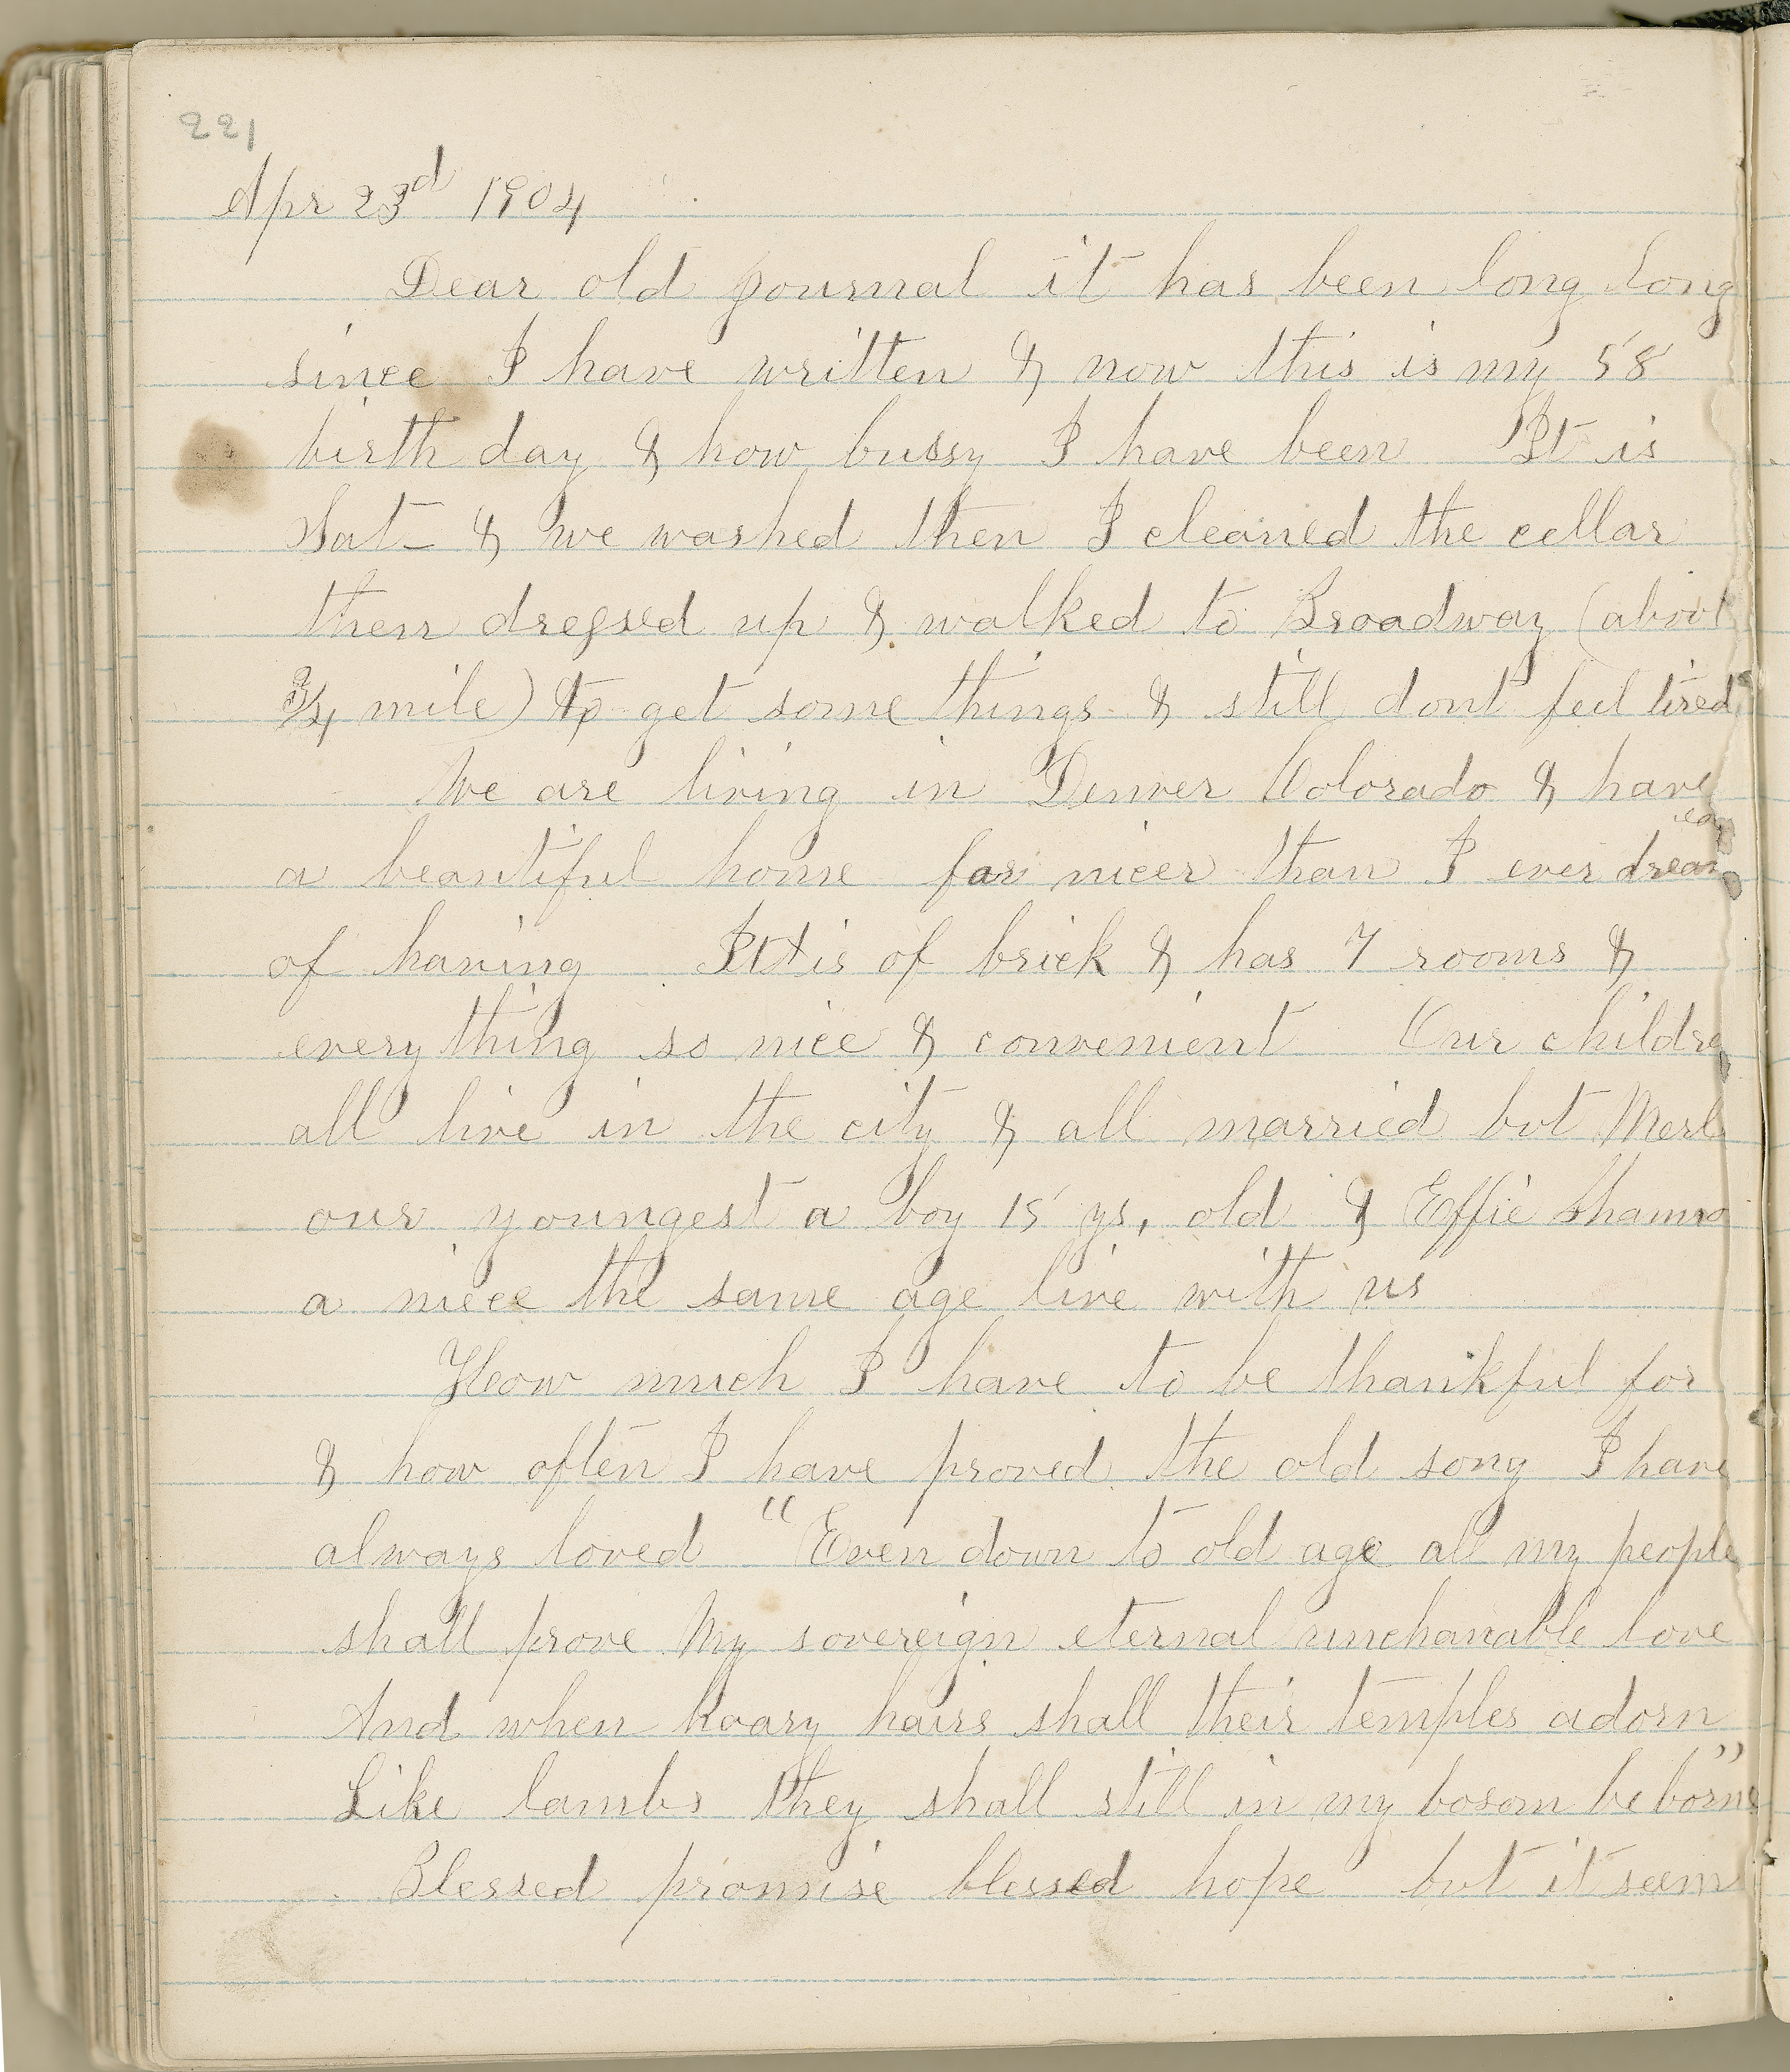 221
Apr 23d 1904
Dear old journal it has been long long
since I have written & now this is my 58
birth day & how bussy I have been It is
Sat- & we washed then I cleaned the cellar
then dressed up & walked to Broadway (about
3/4 mile) to get some things & still dont feel tired
We are living in Denver Colorado & have
a beautiful home far nicer than I ever dream
of having It is of brick & has 7 rooms &
every thing so nice & convenient Our childre
all live in the city & all married but Merl
our youngest a boy 15 ys, old & Effie
a niece the same age live with us
How much I have to be thankful for
& how often I have proved the old song I have
always loved "Even down to old age all my people
shall prove My sovereign eternal unchanable love
And when hoary hairs shall their temples adorn
Like lambs they shall still in my bosom be borne"
Blessed promise blessed hope but it seem